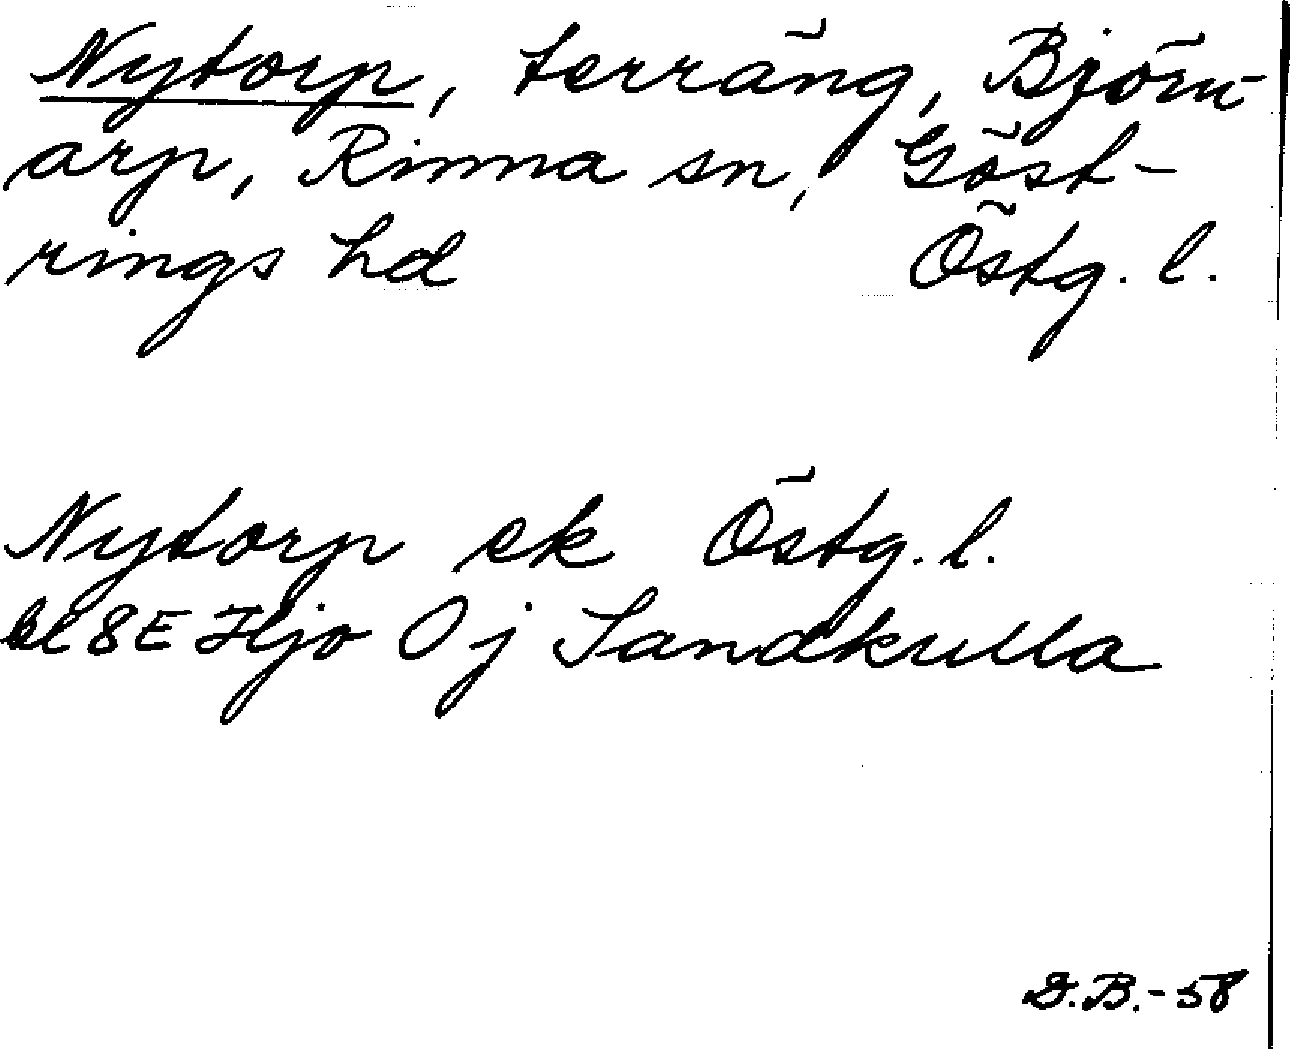 Nytorp, terräng, Björn-
arp, Rinna sn, Göst-
rings hd Östg. l.
Nytorp ek Östg. l.
bl 8E Hjo Oj Sandkulla
D.B.-58